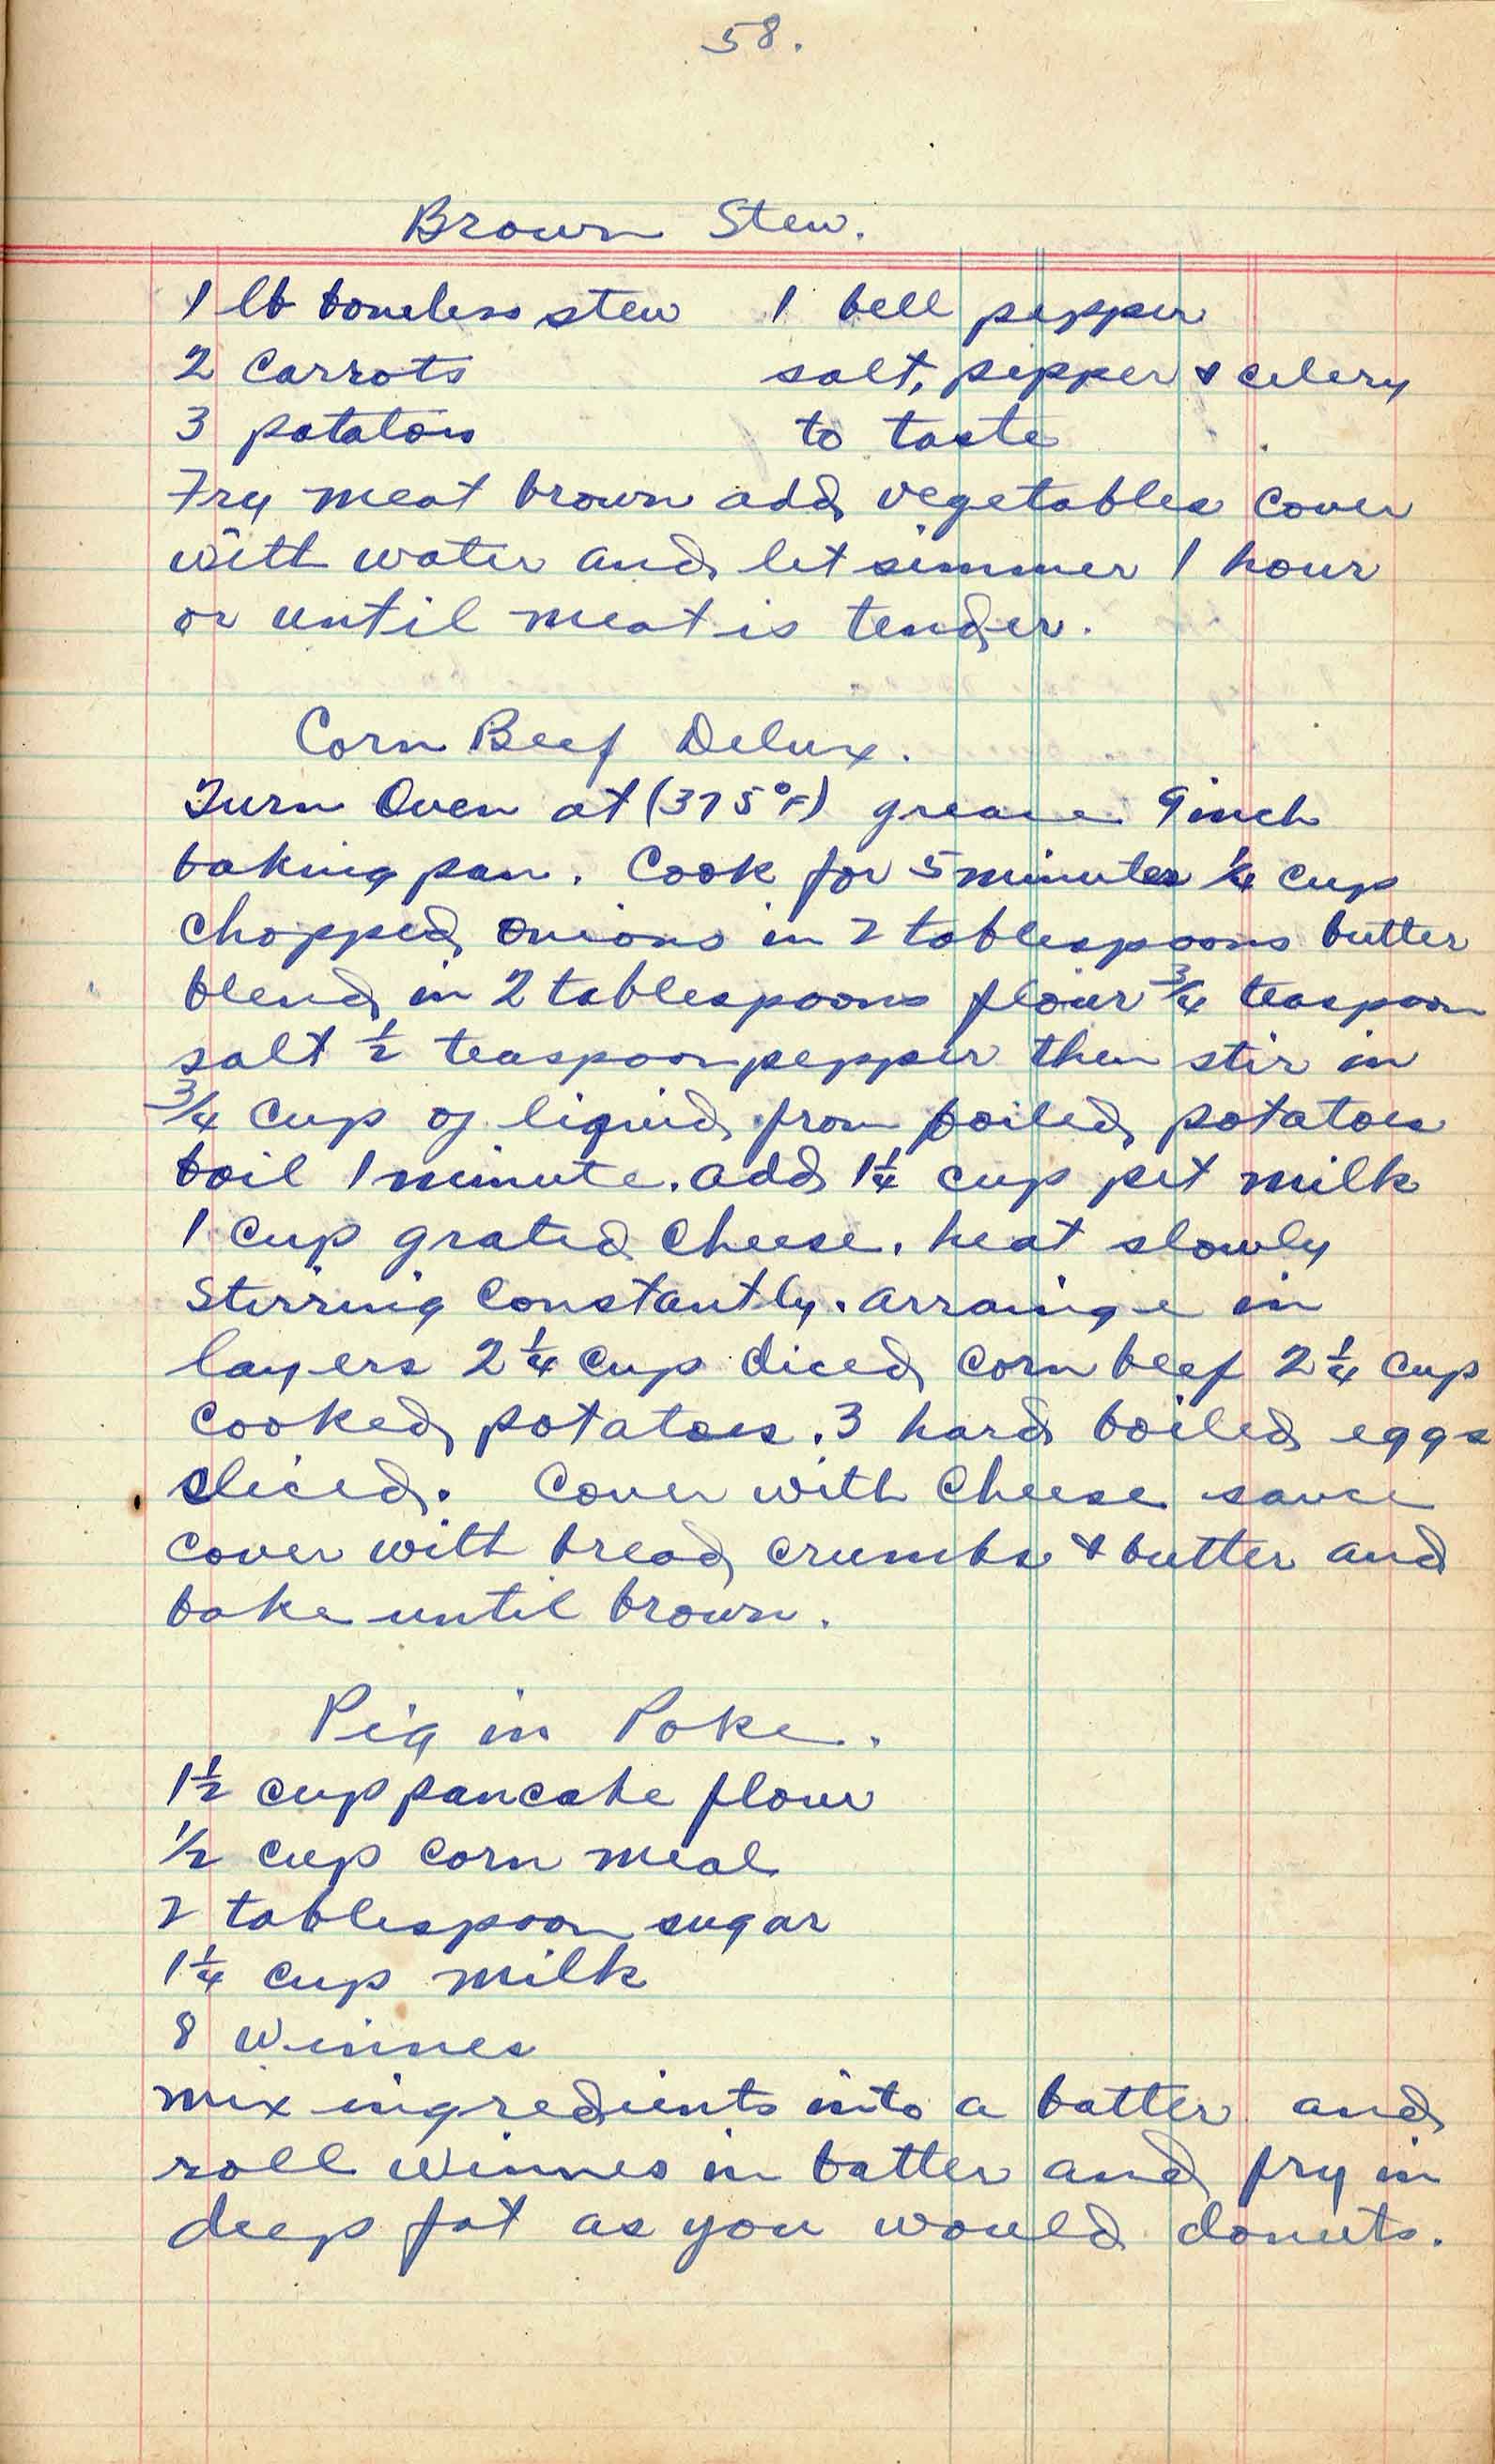 58.
Brown Stew.
1 lb boneless stew 1 bell pepper
2 Carrots salt, pepper & celery
3 potatoes to taste
Fry meat brown add vegetables cover
with water and let simmer 1 hour
or until meat is tender.
Corn Beef Delux.
Turn Oven at (375°F) grease 9 inch
baking pan. Cook for 5 minutes ¼ cup
chopped onions in 2 tablespoons butter
blend in 2 tablespoons flour ¾ teaspoon
salt ½ teaspoon pepper then stir in
¾ cup of liquid from boiled potatoes
boil 1 minute. add 1¼ cup pet milk
1 cup grated cheese. heat slowly
Stirring Constantly. arrange in
layers 2¼ cup diced corn beef 2¼ cup
cooked potatoes. 3 hard boiled eggs
sliced. Cover with Cheese sauce
cover with bread crumbs & butter and
bake until brown.
Pig in Poke.
1½ cup pancake flour
½ cup corn meal
2 tablespoon sugar
1¼ cup milk
8 Winnes
mix ingredients into a batter and
roll winnes in batter and fry in
deep fat as you would donuts.